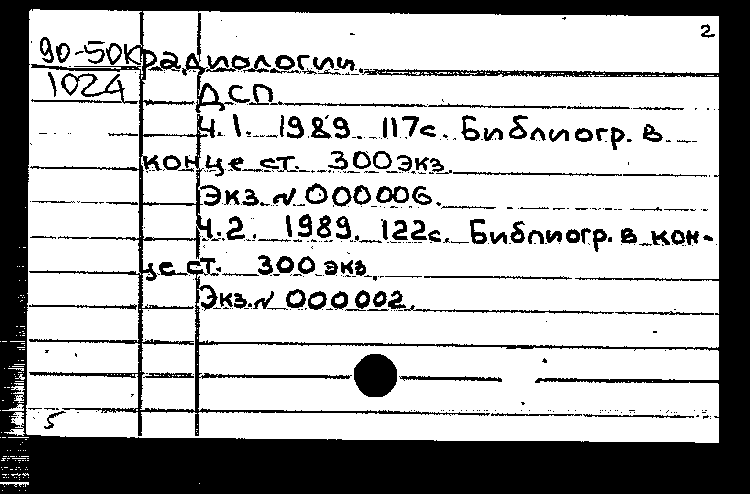 2
90-50К радиологии.
1024
ДСП
Ч.1. 1989. 117с. Библиогр. в
конце ст. 300 экз.
Экз. № 000006.
Ч.2. 1989. 122с. Библиогр. в кон-
це ст. 300 экз.
Экз. № 000002.
5